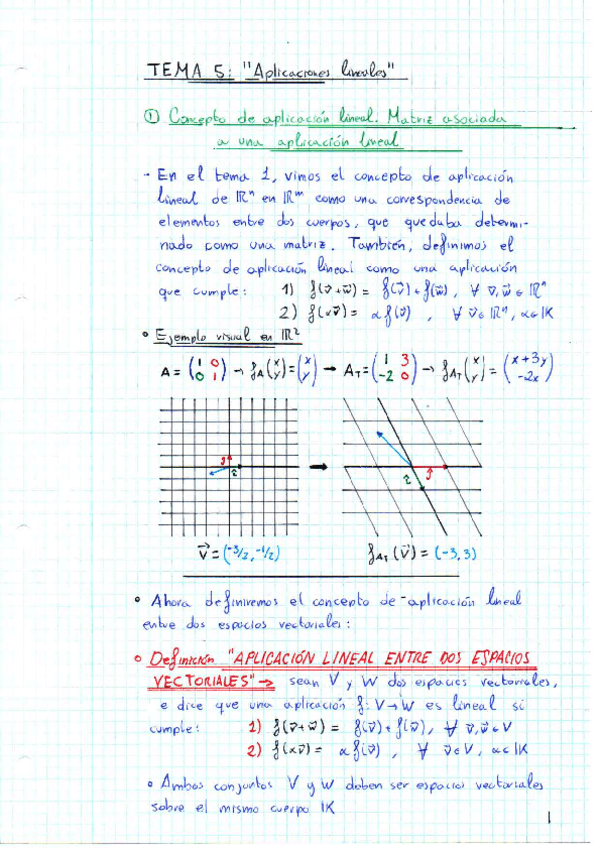 TEMA 5: "Aplicaciones lineales"
① Concepto de aplicación lineal. Matriz asociada
a una aplicación lineal
- En el tema 1, vimos el concepto de aplicación
lineal de ℝⁿ en ℝᵐ como una correspondencia de
elementos entre dos cuerpos, que quedaba determi-
nado como una matriz. También, definimos el
concepto de aplicación lineal como una aplicación
que cumple: 1) f(v⃗+w⃗) = f(v⃗)+f(w⃗), ∀ v⃗,w⃗ ∈ ℝⁿ
2) f(αv⃗) = αf(v⃗), ∀ v⃗∈ℝⁿ, α∈𝕂
• Ejemplo visual en ℝ²
A = (1 0; 0 1) → f_A(x y) = (x y) → A_T = (1 3; -2 0) → f_{A_T}(x y) = (x+3y -2x)
j i j i
v⃗ = (-3/2, -1/2) f_{A_T}(v⃗) = (-3, 3)
• Ahora definiremos el concepto de aplicación lineal
entre dos espacios vectoriales:
• Definición "APLICACIÓN LINEAL ENTRE DOS ESPACIOS
VECTORIALES" → sean V y W dos espacios vectoriales,
e dice que una aplicación f: V→W es lineal si
cumple: 1) f(v⃗+w⃗) = f(v⃗)+f(w⃗), ∀ v⃗,w⃗∈V
2) f(αv⃗) = αf(v⃗), ∀ v⃗∈V, α∈𝕂
• Ambos conjuntos V y W deben ser espacios vectoriales
sobre el mismo cuerpo 𝕂
1